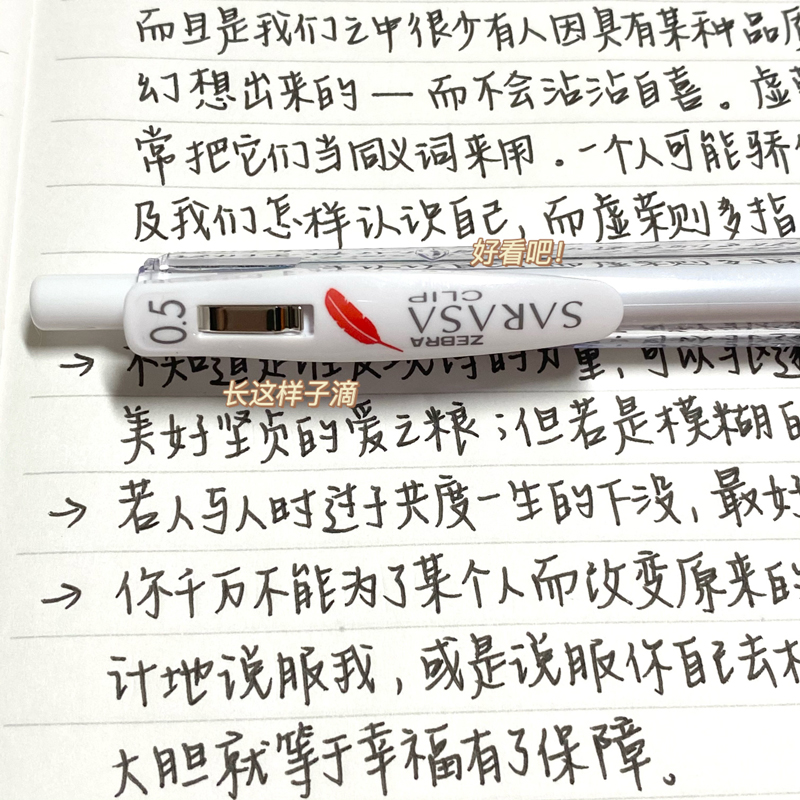 而且是我们之中很少有人因具有某种品质
幻想出来的 — 而不会沾沾自喜。虚荣
常把它们当同义词来用．一个人可能骄
及我们怎样认识自己，而虚荣则多指
好看吧！
0.5
SARASA
CLIP
ZEBRA
不知道是
的力量，可以
长这样子滴
美好坚贞的爱之粮；但若是模糊的
→ 若人与人时过于共度一生的下没，最好
→ 你千万不能为了某个人而改变原来的
计地说服我，或是说服你自己去相
大胆就等于幸福有了保障。